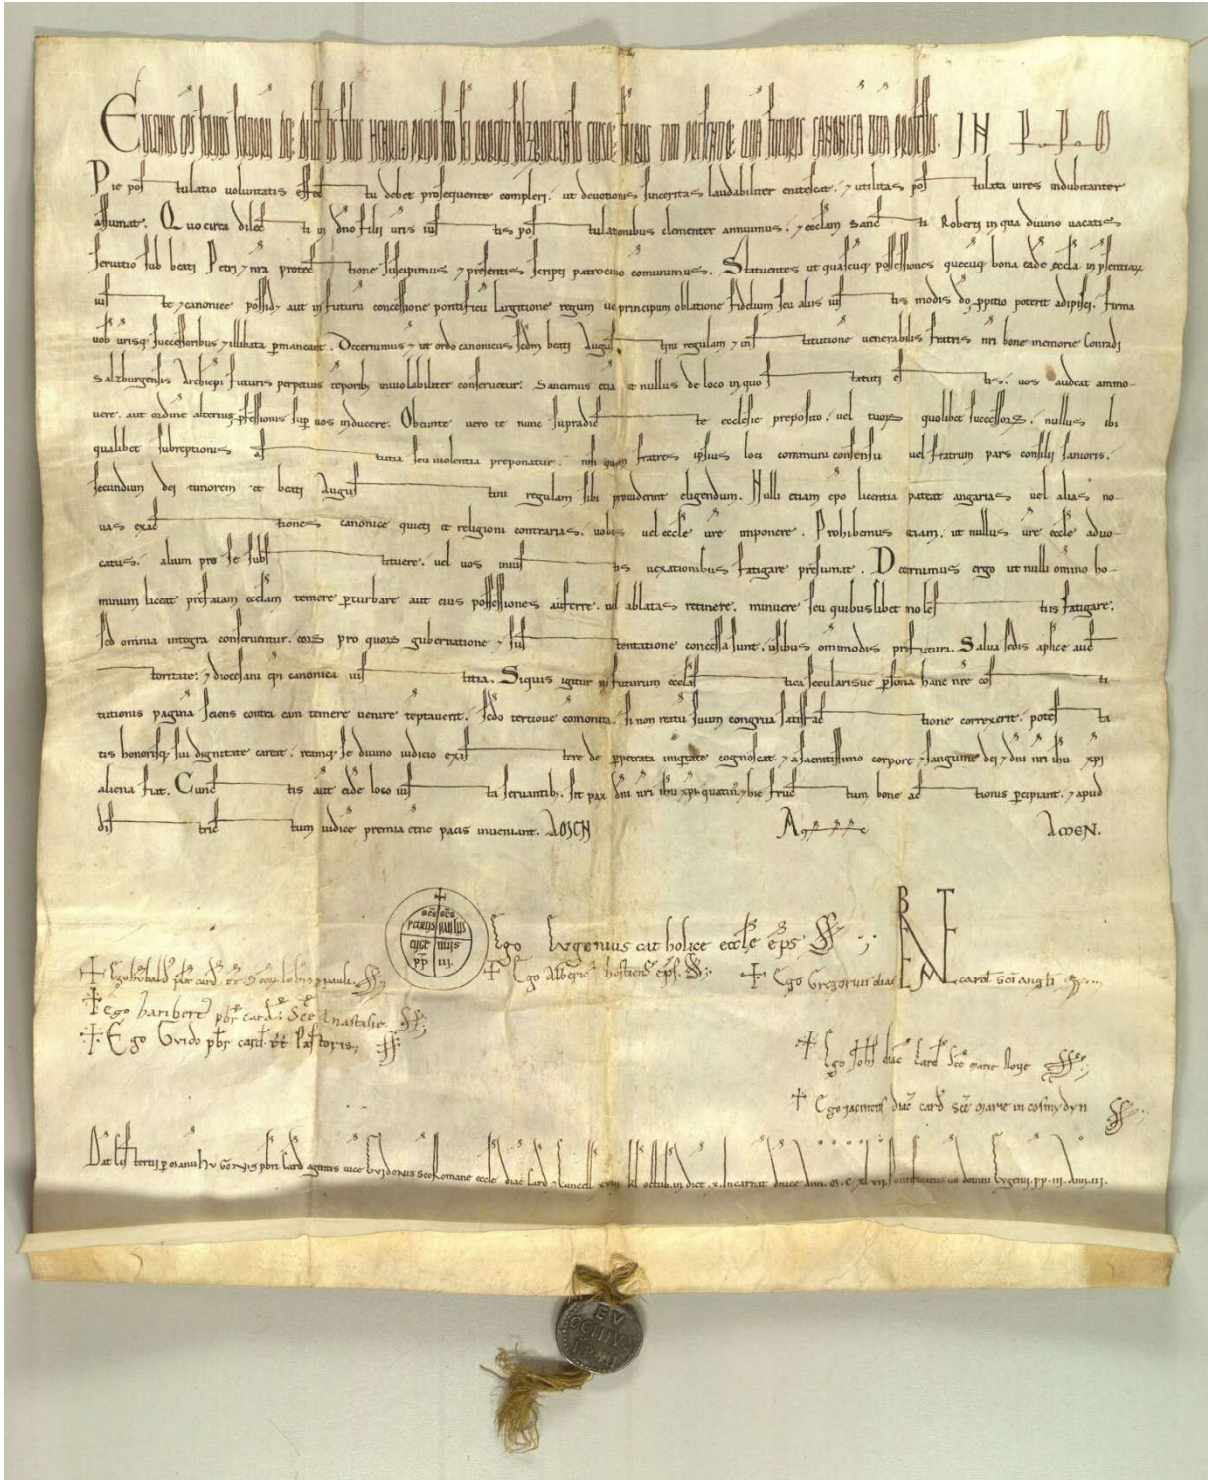 EUGENIUS EPS SERVUS SERVORU DEI. DILECTIS FILIIS HENRICO PREPOSITO SCI ROBERTI SALZBURGENSIS EIUSQ; FRATRIBUS TAM PRESENTIB; QUA FUTURIS CANONICA VITA PROFESSIS. IN P.P.M
Pie postulatio voluntatis effectu debet prosequente compleri. ut devotionis sinceritas laudabiliter enitescat. et utilitas postulata vires indubitanter
assumat. Quo circa dilecti in dno filii vris iustis postulationibus clementer annuimus. et ecclam sancti Roberti in qua divino vacatis
servitio sub beati Petri et nra protectione suscipimus et presentis scripti patrocinio comunimus. Statuentes ut quascuq; possessiones quecuq; bona eade eccla in psentiaru
iuste et canonice possidet aut in futuru concessione pontificu largitione regum ve principum oblatione fidelium seu aliis iustis modis do ppitio poterit adipisci. firma
vob vrisq; successoribus et illibata pmaneant. Decernimus et ut ordo canonicus scdm beati Augustini regulam et institutione venerabilis fratris nri bone memorie Conradi
Salzburgensis Archiepi futuris perpetuis teporib; inviolabiliter conservetur. Sancimus etia ut nullus de loco in quo statuti estis. vos audeat ammo-
vere. aut ordine alterius pfessionis sup vos inducere. Obeunte vero te nunc supradicte ecclesie preposito. vel tuorum quolibet successorum. nullus ibi
qualibet subreptionis astutia seu violentia preponatur. nisi quem fratres ipsius loci communi consensu vel fratrum pars consilii sanioris.
secundum dei timorem et beati Augustini regulam sibi providerint eligendum. Nulli etiam epo licentia pateat angarias vel alias no-
vas exactiones canonice quieti et religioni contrarias. vobis vel eccle vre imponere. Prohibemus etiam. ut nullus vre eccle advo-
catus. alium pro se substituere. vel vos iniustis vexationibus fatigare presumat. Decernimus ergo ut nulli omino ho-
minum liceat prefatam ecclam temere pturbare aut eius possessiones auferre. vel ablatas retinere. minuere seu quibuslibet molestiis fatigare.
sed omnia integra conserventur. eorum pro quorum gubernatione et sustentatione concessa sunt. usibus omimodis profutura. Salva sedis aplice auc
toritate. et diocesani epi canonica iustitia. Siquis igitur in futurum ecclastica secularisve psona hanc nre costi
tutionis pagina sciens contra eam temere venire teptaverit. scdo tertiove comonita. si non reatu suum congrua satisfactione correxerit. potesta
tis honorisq; sui dignitate careat. reamq; se divino iudicio existere de ppetrata iniqtate cognoscat. et a sacratissimo corpore et sanguine dei et dni nri ihu xpi
aliena fiat. Cunctis aut eide loco iusta servantib;. sit pax dni nri ihu xpi. quatin; et hic fructum bone actionis pcipiant. et apud
districtum iudice premia etne pacis inveniant. AMEN Amen AMEN.
SCS SCS
PETRUS PAULUS
EUGENIUS
PP III.
Ego Eugenius catholice eccle eps SS
BENE VALETE
+ Ego hubald pbr card tt scor Iohis et pauli SS
+ Ego Albericus hostiensis eps. SS
+ Ego Gregorius diac card sci angli SS
+ Ego haribertus pbr card. sce Anastasie. SS
+ Ego Guido pbr card tt Pastoris SS
+ Ego Iohs diac card sce marie Nove SS
+ Ego iacintus diac card sce marie in cosmydyn SS
Dat per manu hugonis pbri card agentis vice Guidonis sce Romane eccle diac card et Cancell xviii kl octub. indict. x. Incarnat dnice Ann. M.C.XL.VII. Pontificatus vo domni Eugenii. PP. III. Ann. III.
EU
GENIUS
PP III